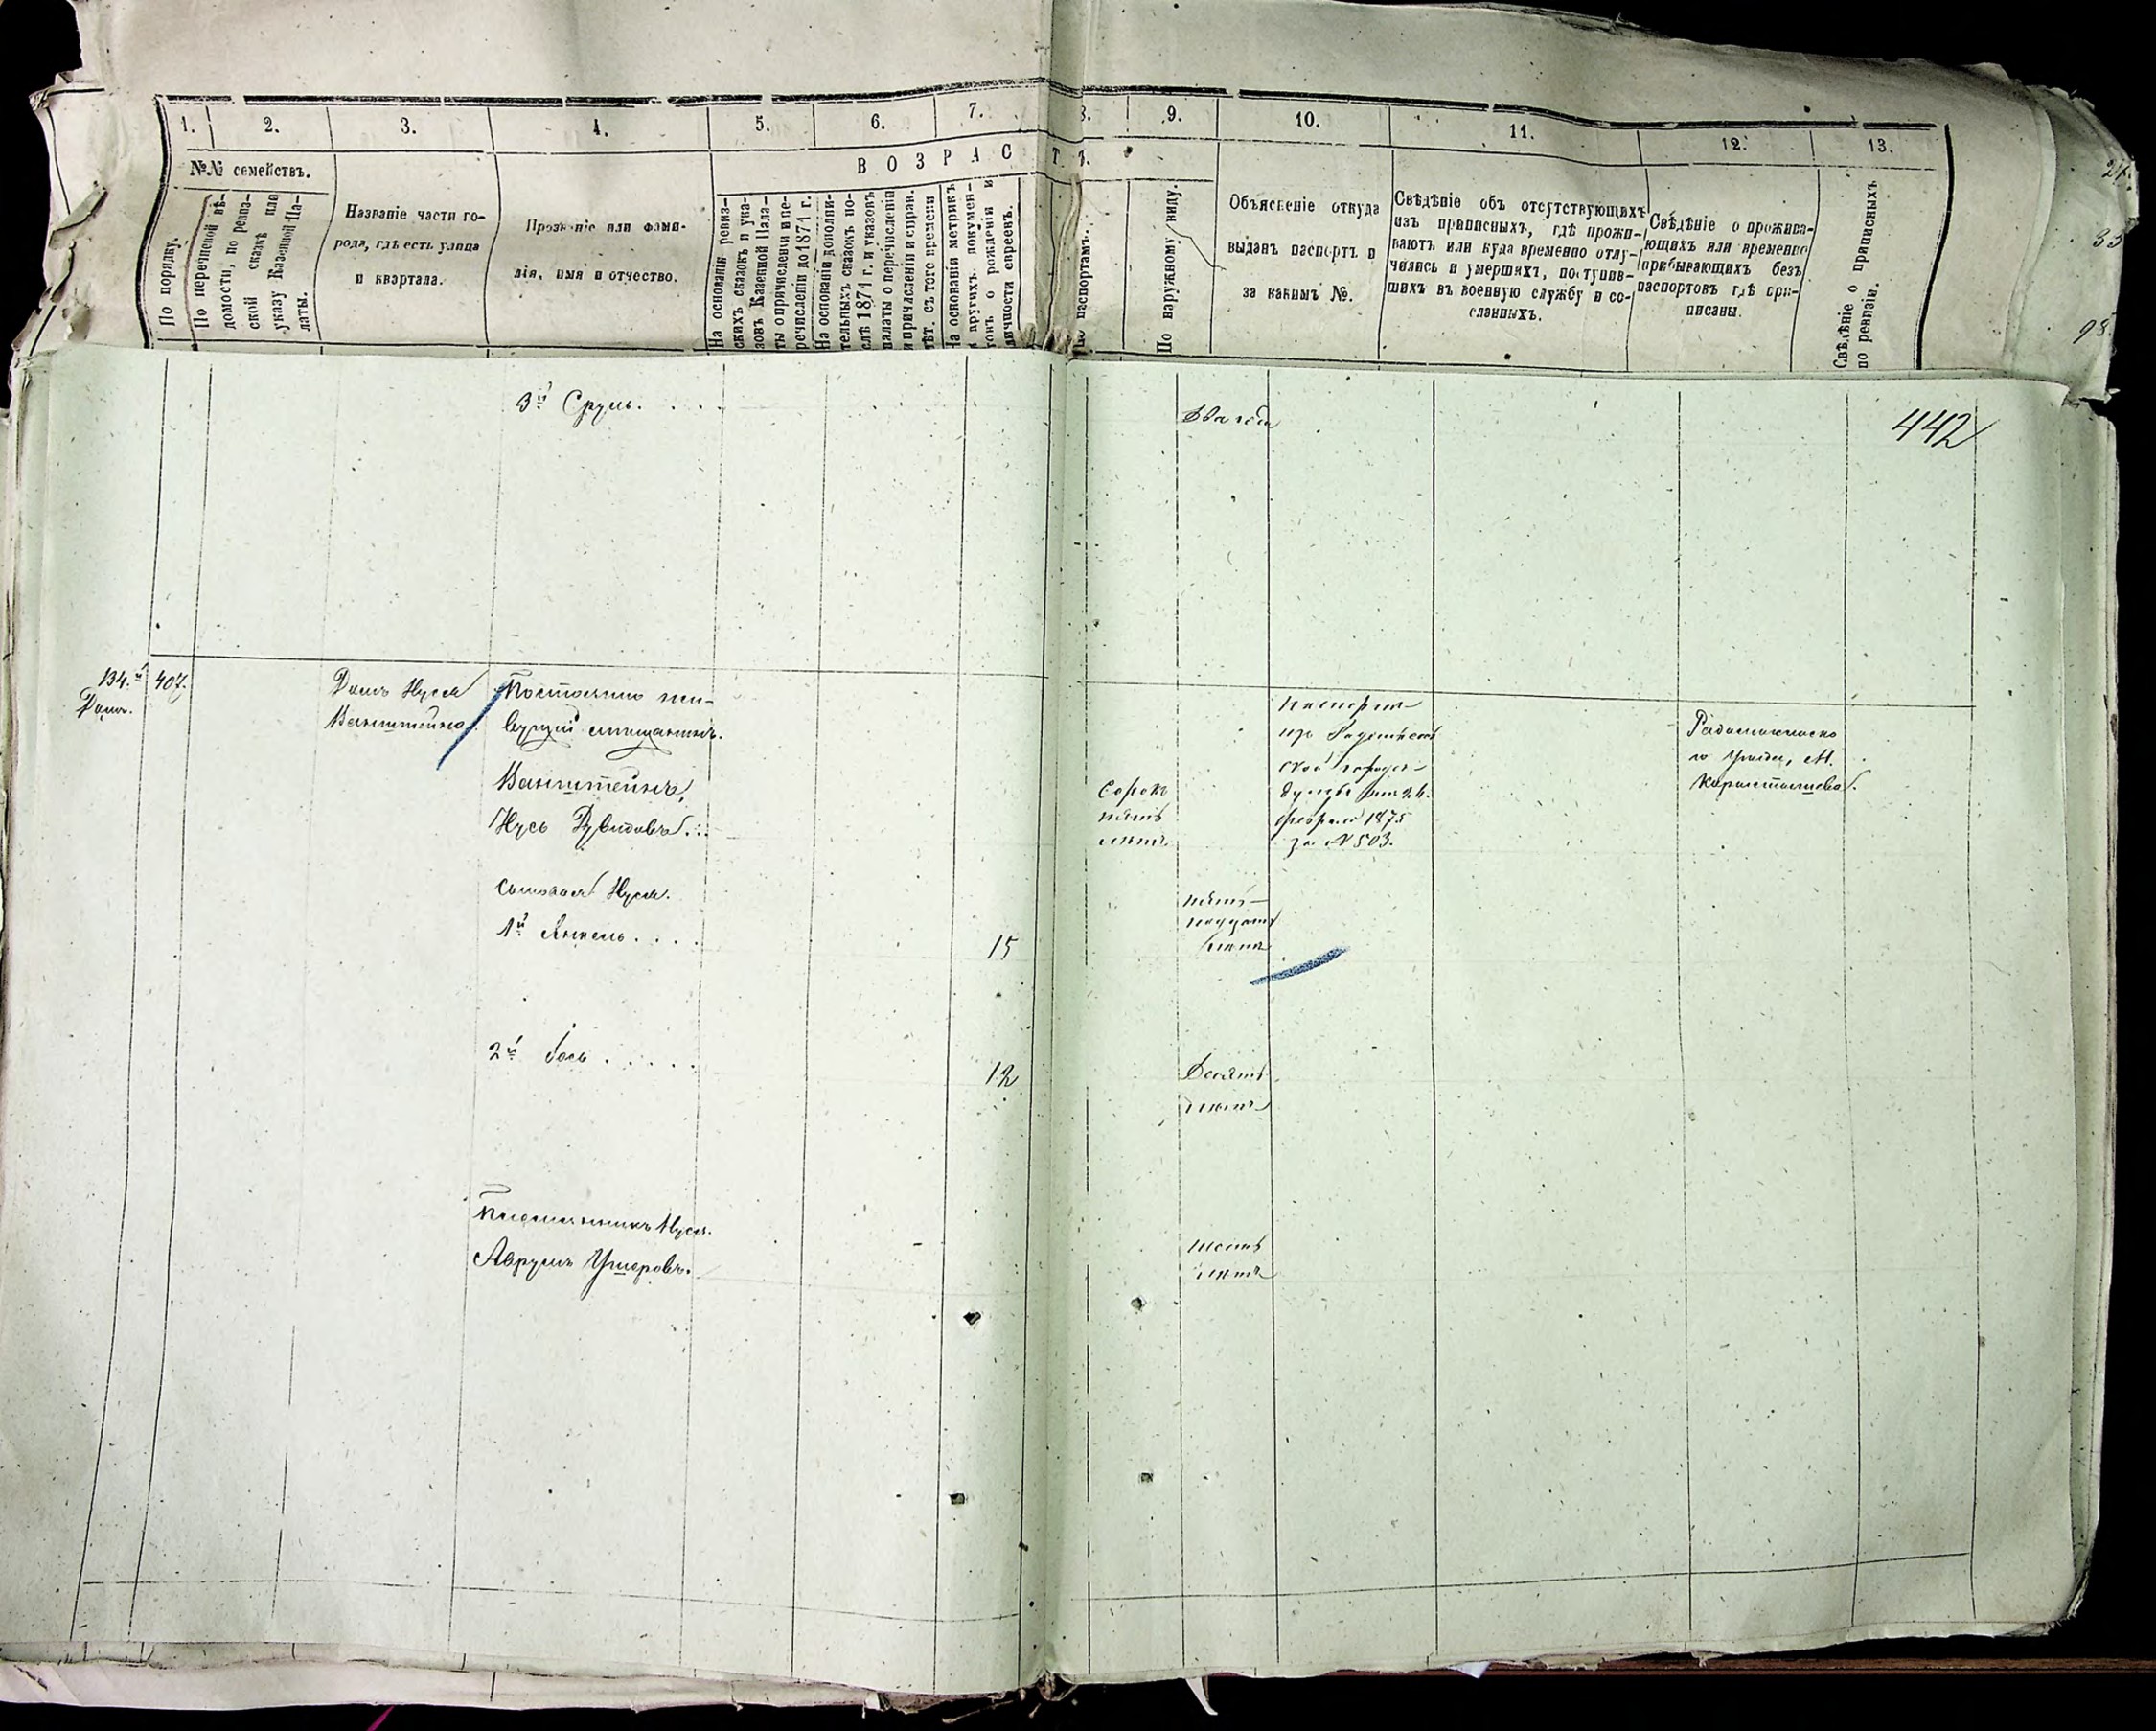 1.
2.
3.
4.
5.
6.
7.
8.
9.
10.
11.
12.
13.
№№ семействъ.
ВОЗРАСТЪ.
По порядку.
По перечневой вѣ-
домости, по ревиз-
ской сказкѣ или
указу Казенной Па-
латы.
Названіе части го-
рода, гдѣ есть улица
и квартала.
Прозваніе или фами-
лія, имя и отчество.
На основаніи ревиз-
скихъ сказокъ и ука-
зовъ Казенной Пала-
ты о причисленіи и пе-
речисленіи до 1871 г.
На основаніи дополни-
тельныхъ сказокъ по-
слѣ 1871 г. и указовъ
палаты о перечисленіи
и причисленіи и справ.
лѣт. съ того времени
На основаніи метрикъ
и другихъ докумен-
товъ о рожденіи и
личности евреевъ.
По паспортамъ.
По наружному виду.
Объясненіе откуда
выданъ паспортъ и
за какимъ №.
Свѣдѣніе объ отсутствующихъ
изъ приписныхъ, гдѣ прожи-
ваютъ или куда временно отлу-
чились и умершихъ, поступив-
шихъ въ военную службу и со-
сланныхъ.
Свѣдѣніе о прожива-
ющихъ или временно
прибывающихъ безъ
паспортовъ гдѣ при-
писаны.
Свѣдѣніе о приписныхъ
по ревизіи.
442
3й Сруль. . . .
два года
134.й
Домъ.
407.
Домъ Нуся
Ванштейна.
Постоянно жи-
вущій мѣщанинъ.
Ванштейнъ,
Нусь Дувидовъ . .
сорокъ
пять
лѣтъ
паспортъ
изъ
ской город.
думы отъ 24.
февраля 1875
за № 503.
Радомысльска-
го уѣзда, М.
Коростышева.
Сыновья Нуся.
1й Янкель. . . .
15
пят-
надцать
лѣтъ
2й Іось . . . . .
12
десять
лѣтъ
Племянникъ Нуся.
Аврумъ Ушеровъ.
шесть
лѣтъ